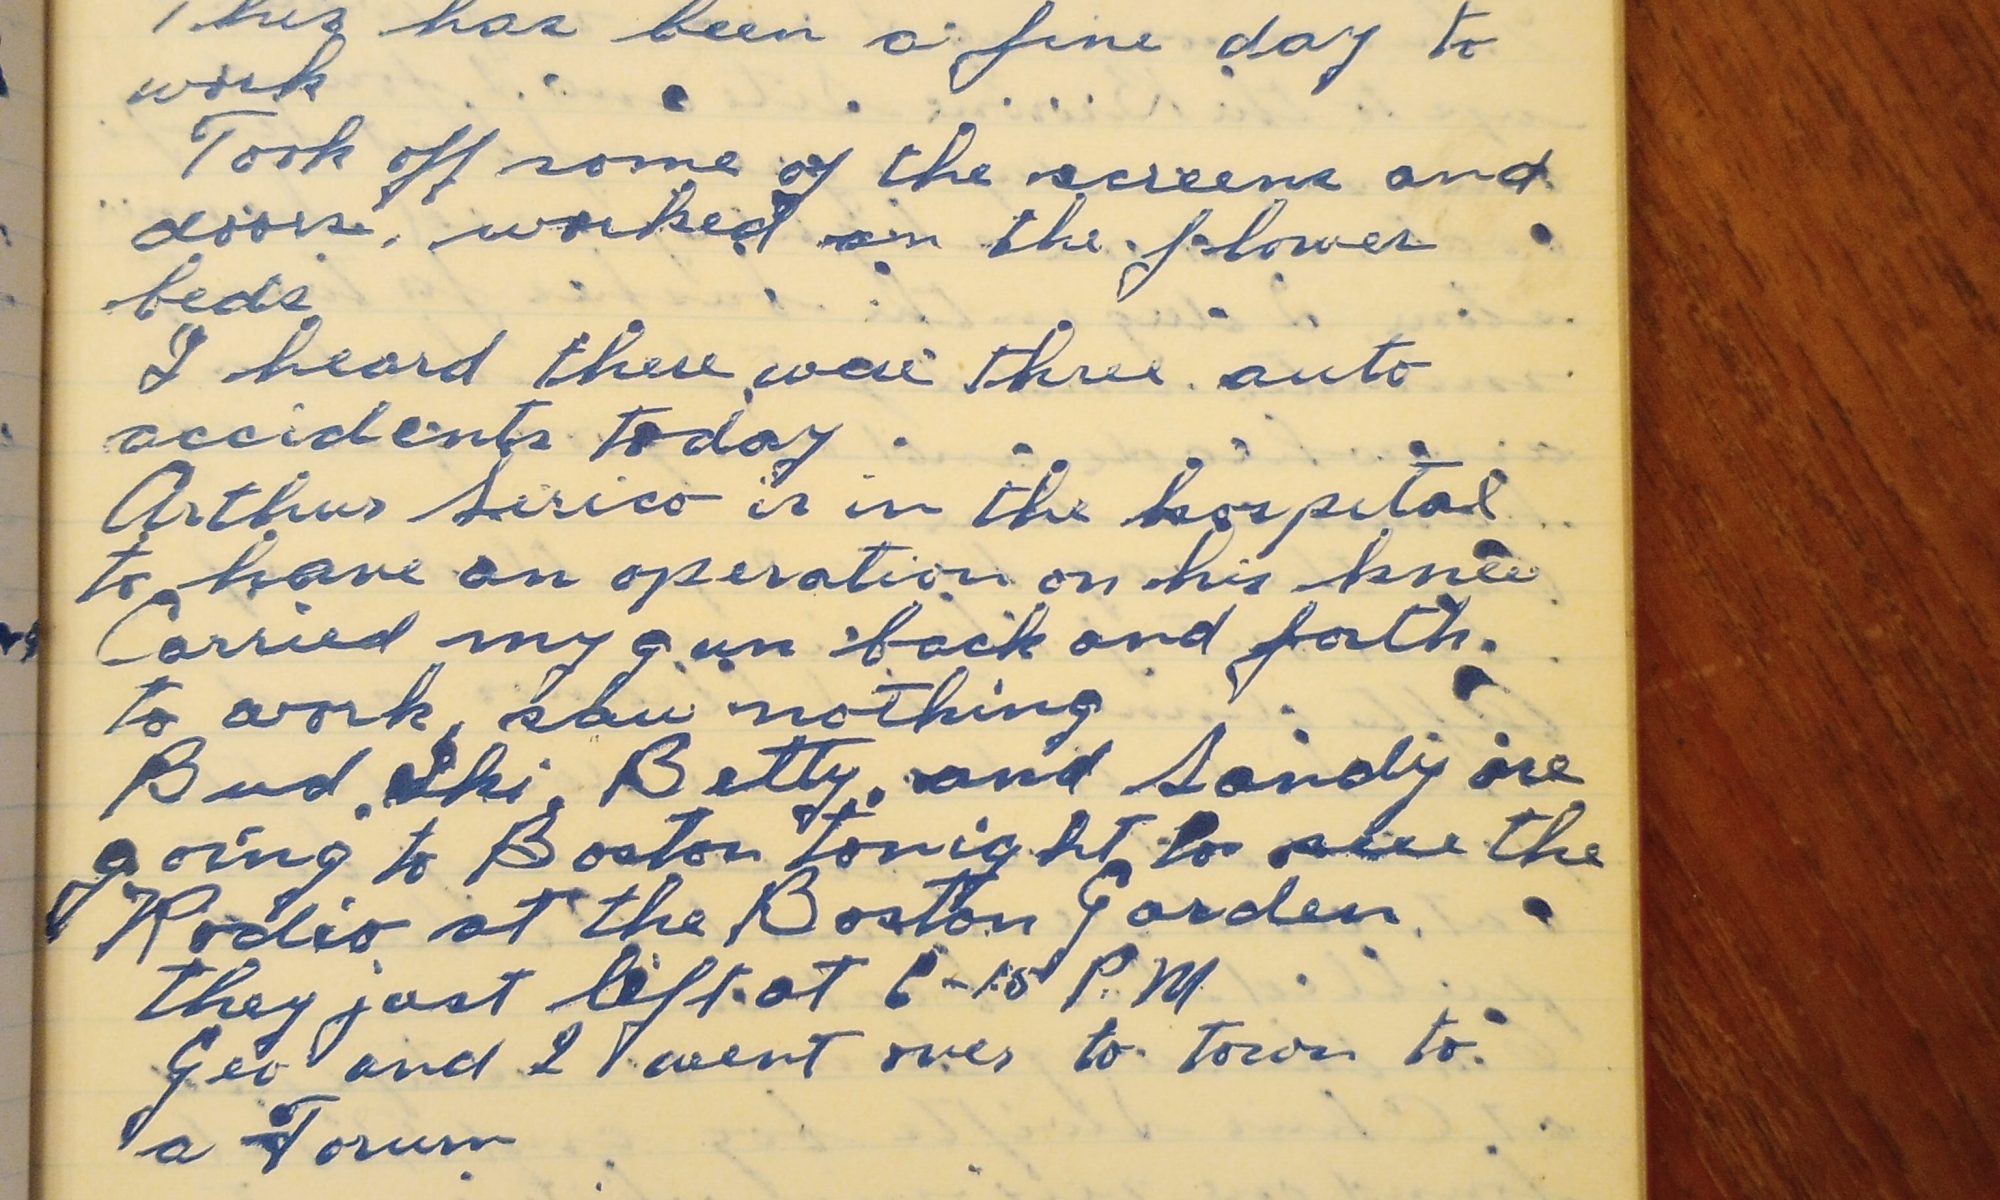 This has been a fine day to
work
Took off some of the screens and
doors, worked on the flower
beds
I heard there were three auto
accidents today
Arthur Serico is in the hospital
to have an operation on his knee
Carried my gun back and forth
to work, saw nothing
Bud, Ski, Betty, and Sandy are
going to Boston tonight to see the
Rodio at the Boston Garden
they just left at 6-15 P.M
Geo and I went over to town to
a Forum